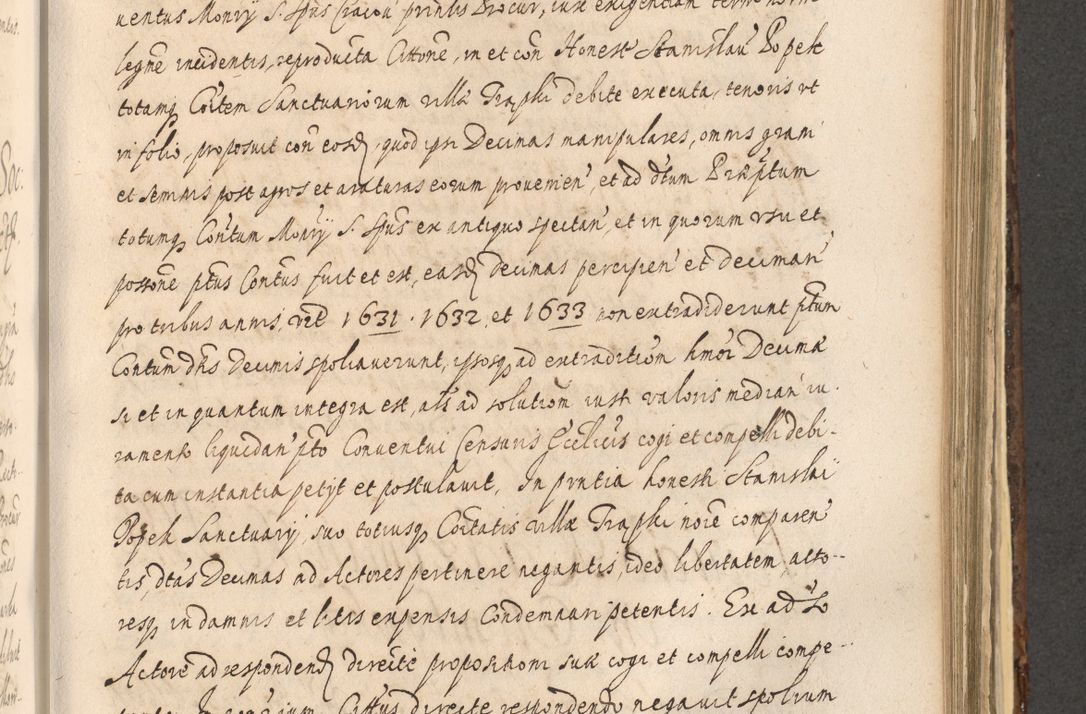 uentus Monry S. Spus Cracou printis Procur, iuxe exigentiam termi
legne incidentis, reproducta Citone, in et con Honest Stanislau Popek
totamq Coitem Sanctuariorum villæ Trapki debite executa, tenoris vt
in folio, proposuit con eosd, quod ipsi Decimas manipulares, omnis grani
et seminis post agros et araturas eorum prouenien, et ad dtum Præptum
totumq Contum Monry S. Spus ex antiquo spectan, et in quorum vsu et
possone ptus Contus fuit et est, easd decimas percipien et deciman
pro tribus annis, vid 1631 . 1632, et 1633 non extradiderunt ptum
Contum dhs Decimis spoliauerunt, ipsosq ad extraditiom hmoi Decimæ
si et in quantum integra est, als ad solutiom iusti valoris median iu-
ramento liquidan pto Conuentui Censuris Ecclicis cogi et compelli debi-
ta cum instantia petyt et postulauit, In pntia honesti Stanislai
Popek Sanctuarij, suo totiusq Coitatis villæ Trapki noie comparen
tis, dtas Decimas ad Actores pertinere negantis, ideo libertatem, acto-
resq in damnis et litis expensis Condemnari petentis. Ex ad
Actore ad respondend directe propositioni suæ cogi et compelli compe-
Cittus directe respondendo negauit spolium